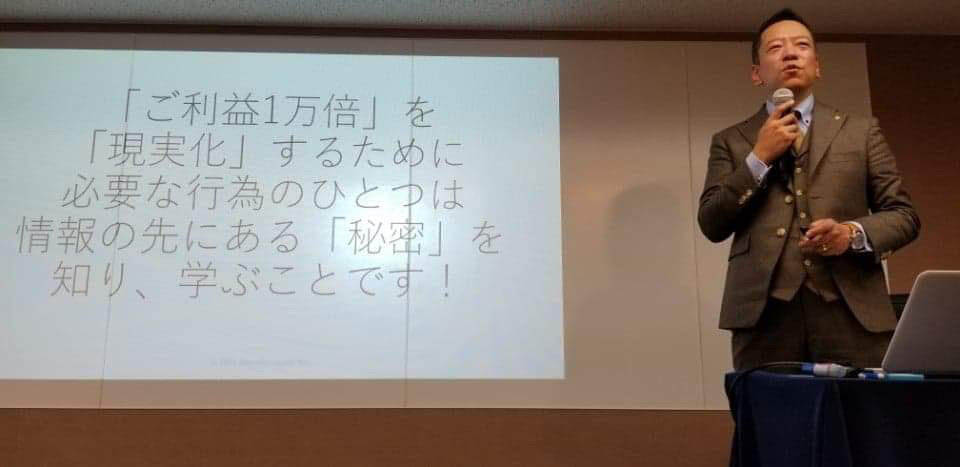 「ご利益1万倍」を
「現実化」するために
必要な行為のひとつは
情報の先にある「秘密」を
知り、学ぶことです！